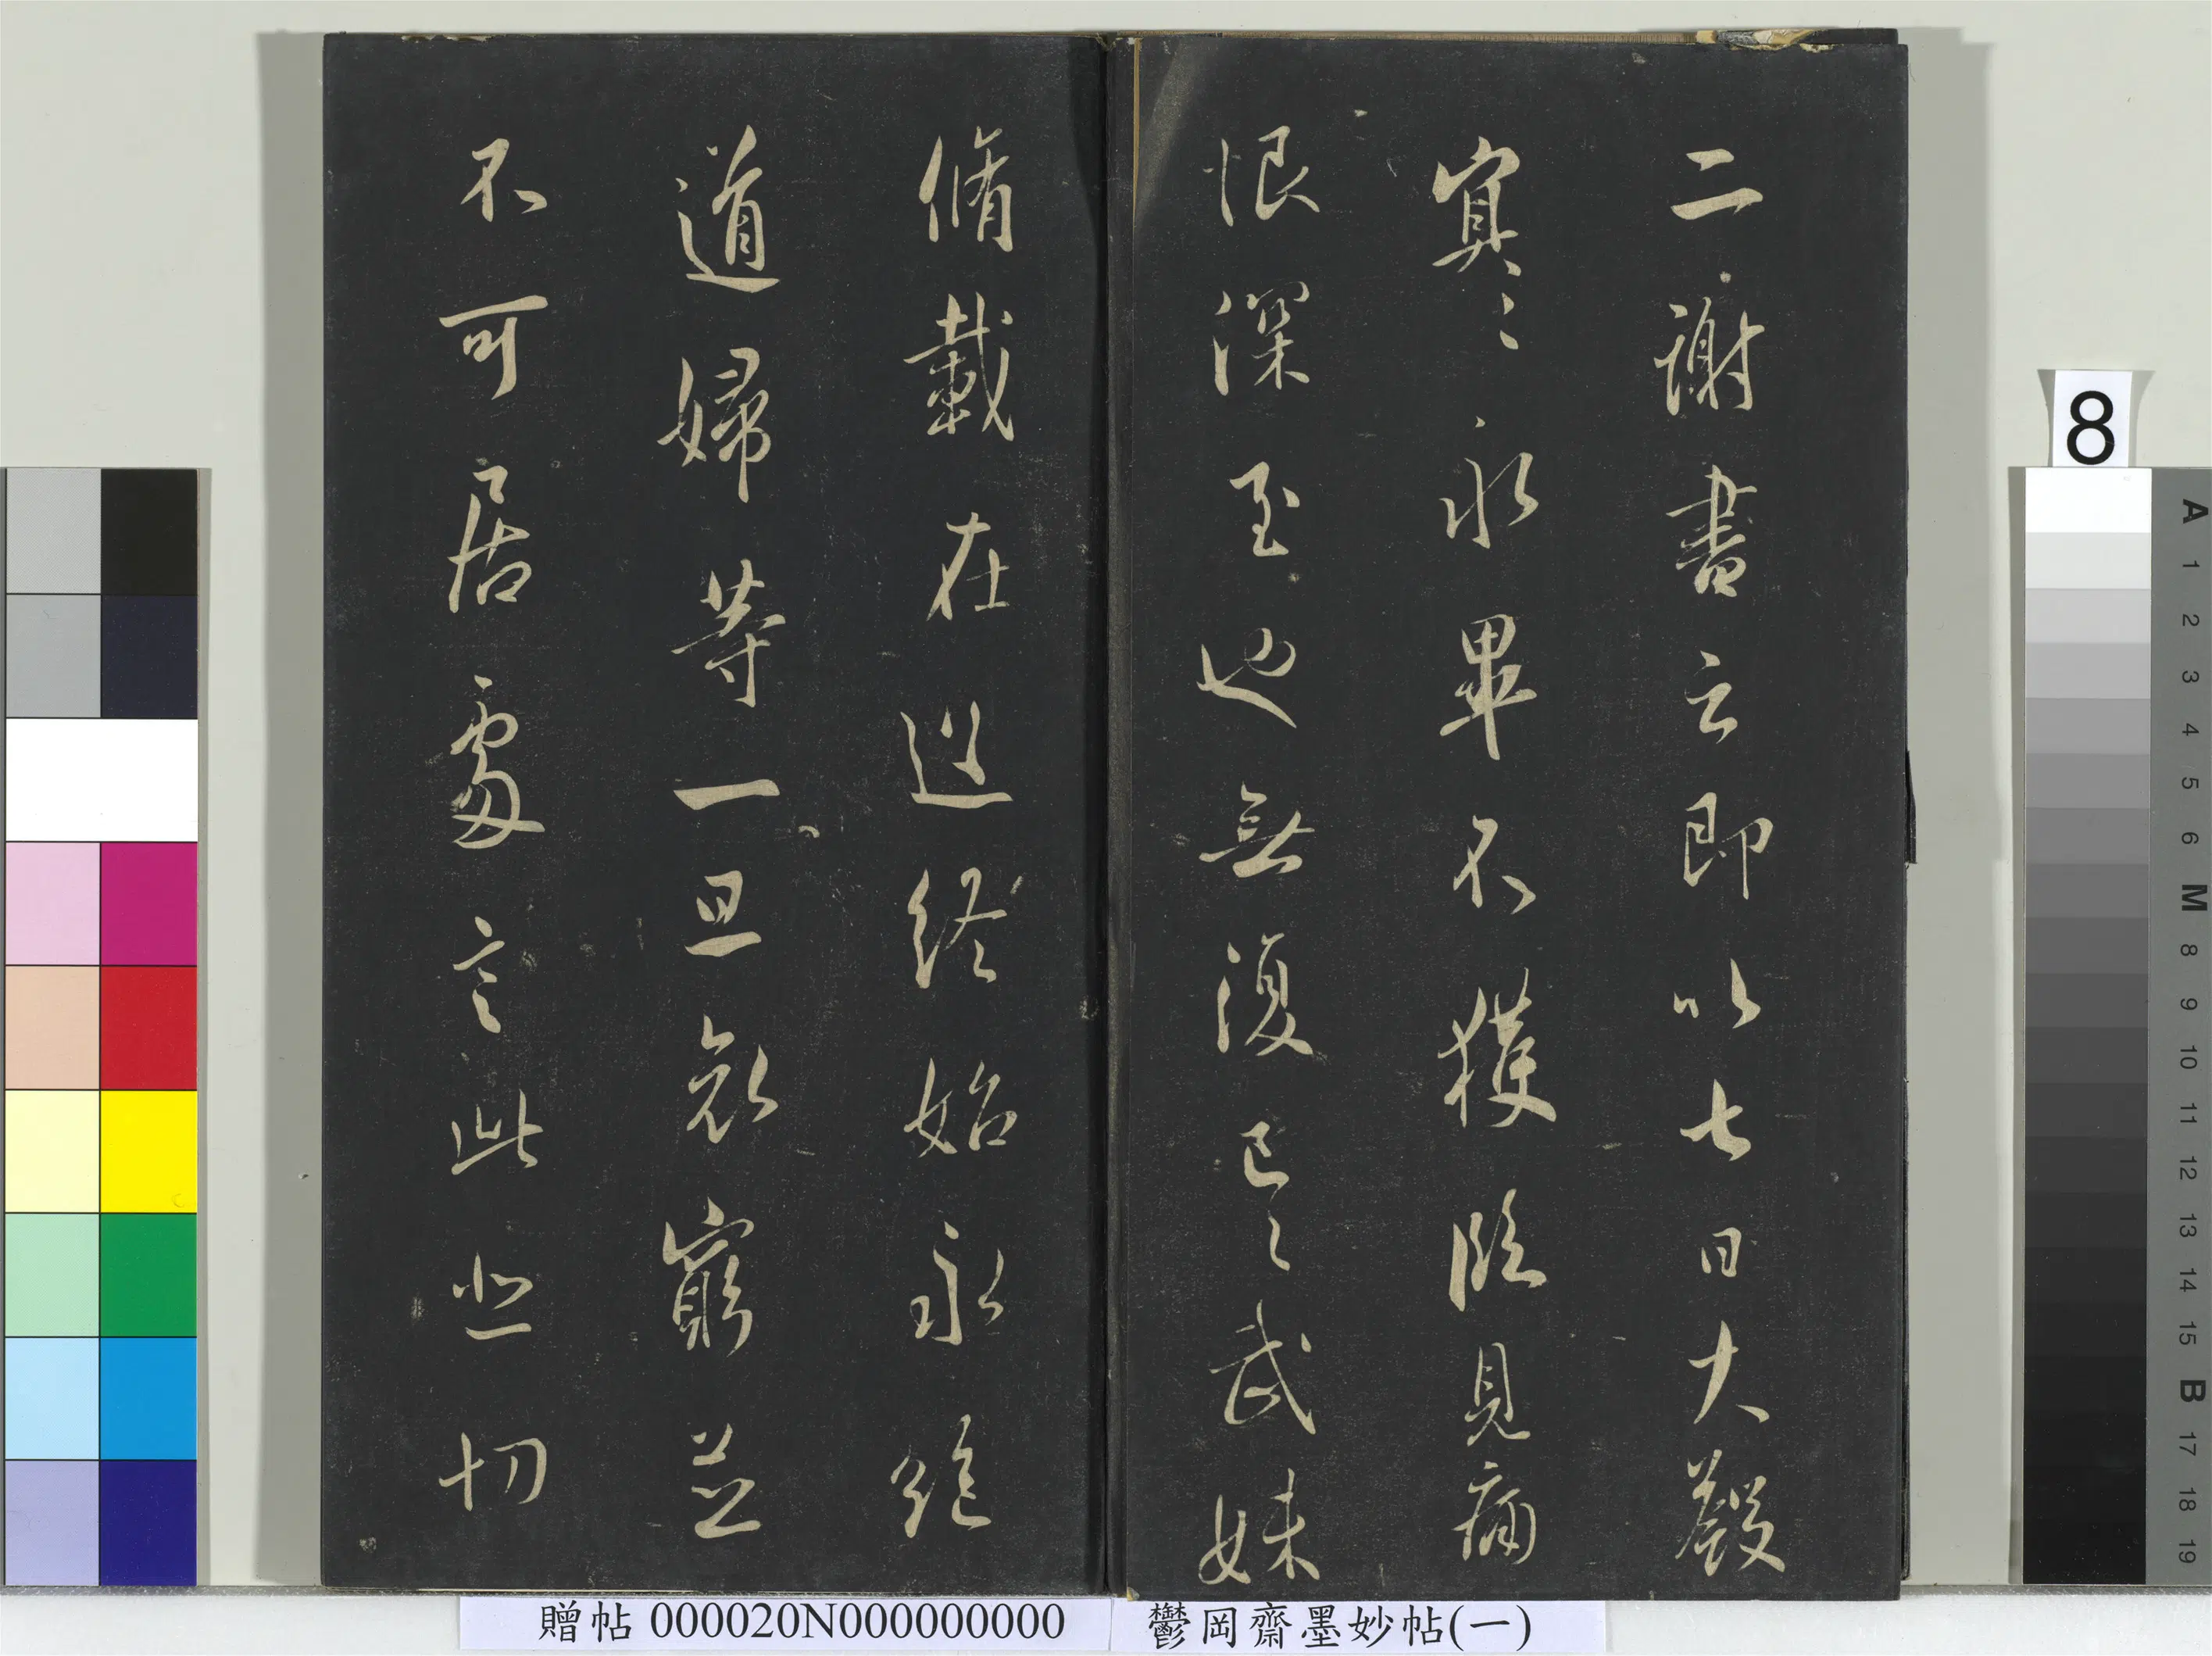 二謝書云即以七日大斂
冥冥永畢不獲臨見痛
恨深至也無復已已武妹
脩載在終始永絕
道婦等一旦哀窮並
不可居處言此悲切
8
A
1
2
3
4
5
6
M
8
9
10
11
12
13
14
15
B
17
18
19
贈帖 000020N000000000
鬱岡齋墨妙帖(一)